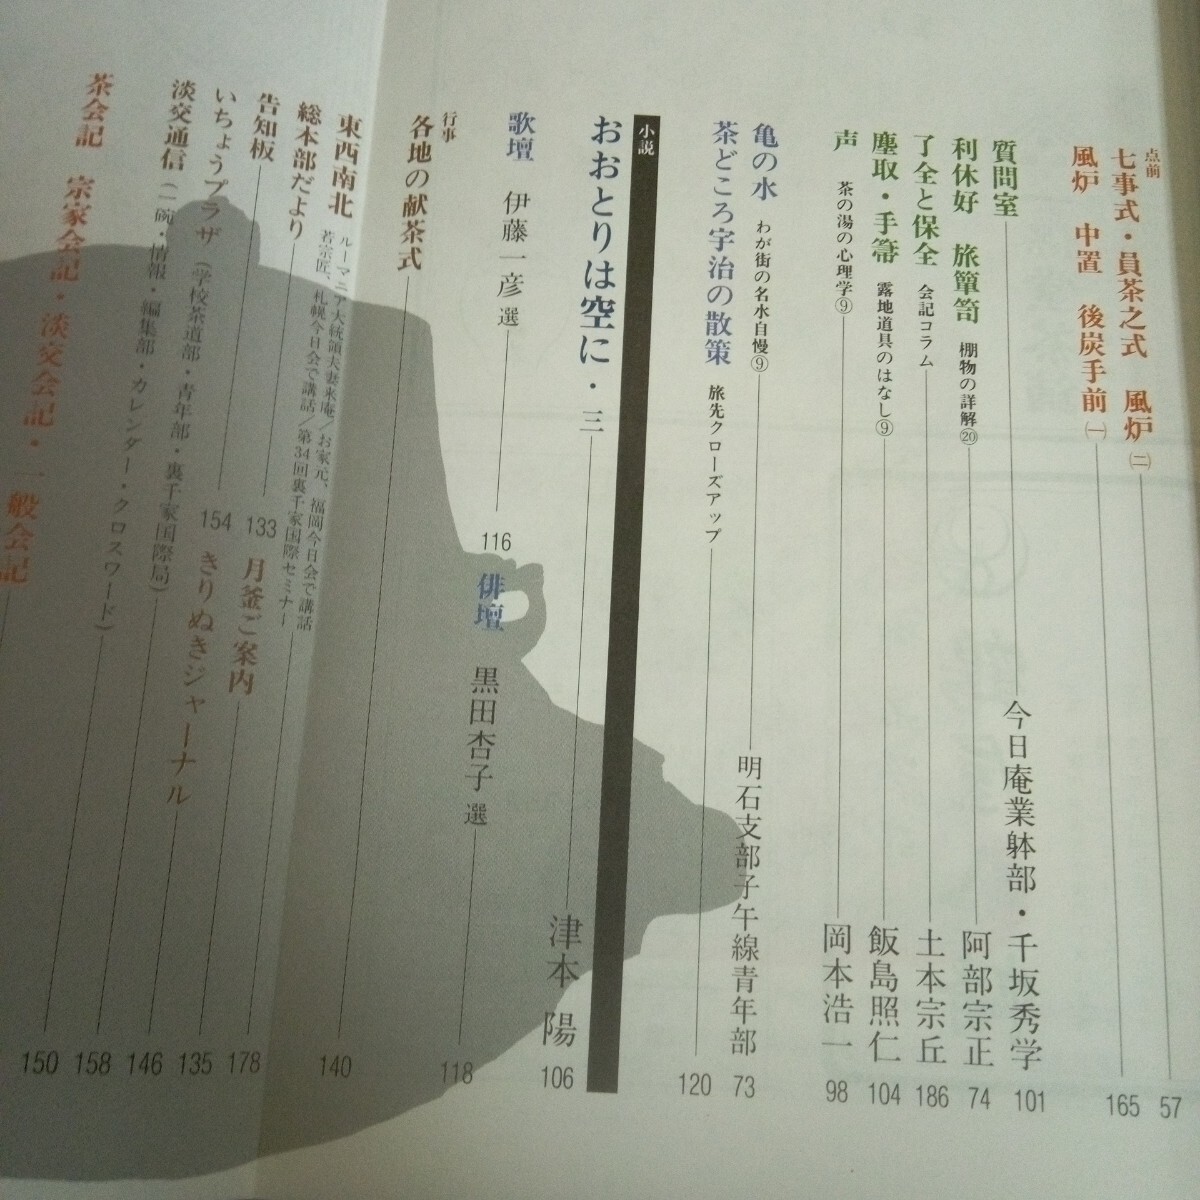 点前
七事式・員茶之式　風炉㈡ 57
風炉　中置　後炭手前㈠ 165
質問室 今日庵業躰部・千坂秀学 101
利休好　旅簞笥　棚物の詳解⑳ 阿部宗正 74
了全と保全　会記コラム 土本宗丘 186
塵取・手箒　露地道具のはなし⑨ 飯島照仁 104
声　茶の湯の心理学⑨ 岡本浩一 98
亀の水　わが街の名水自慢⑨ 明石支部子午線青年部 73
茶どころ宇治の散策　旅先クローズアップ 120
小説
おおとりは空に・三 津本　陽 106
歌壇　伊藤一彦 選 116
俳壇　黒田杏子 選 118
行事
各地の献茶式 140
東西南北　ルーマニア大統領夫妻来庵／お家元、福岡今日会で講話
若宗匠、札幌今日会で講話／第34回裏千家国際セミナー
総本部だより
告知板 133
月釜ご案内 178
いちょうプラザ（学校茶道部・青年部・裏千家国際局） 154
きりぬきジャーナル 135
146
淡交通信（一碗・情報・編集部・カレンダー・クロスワード） 158
茶会記　宗家会記・淡交会記・一般会記 150